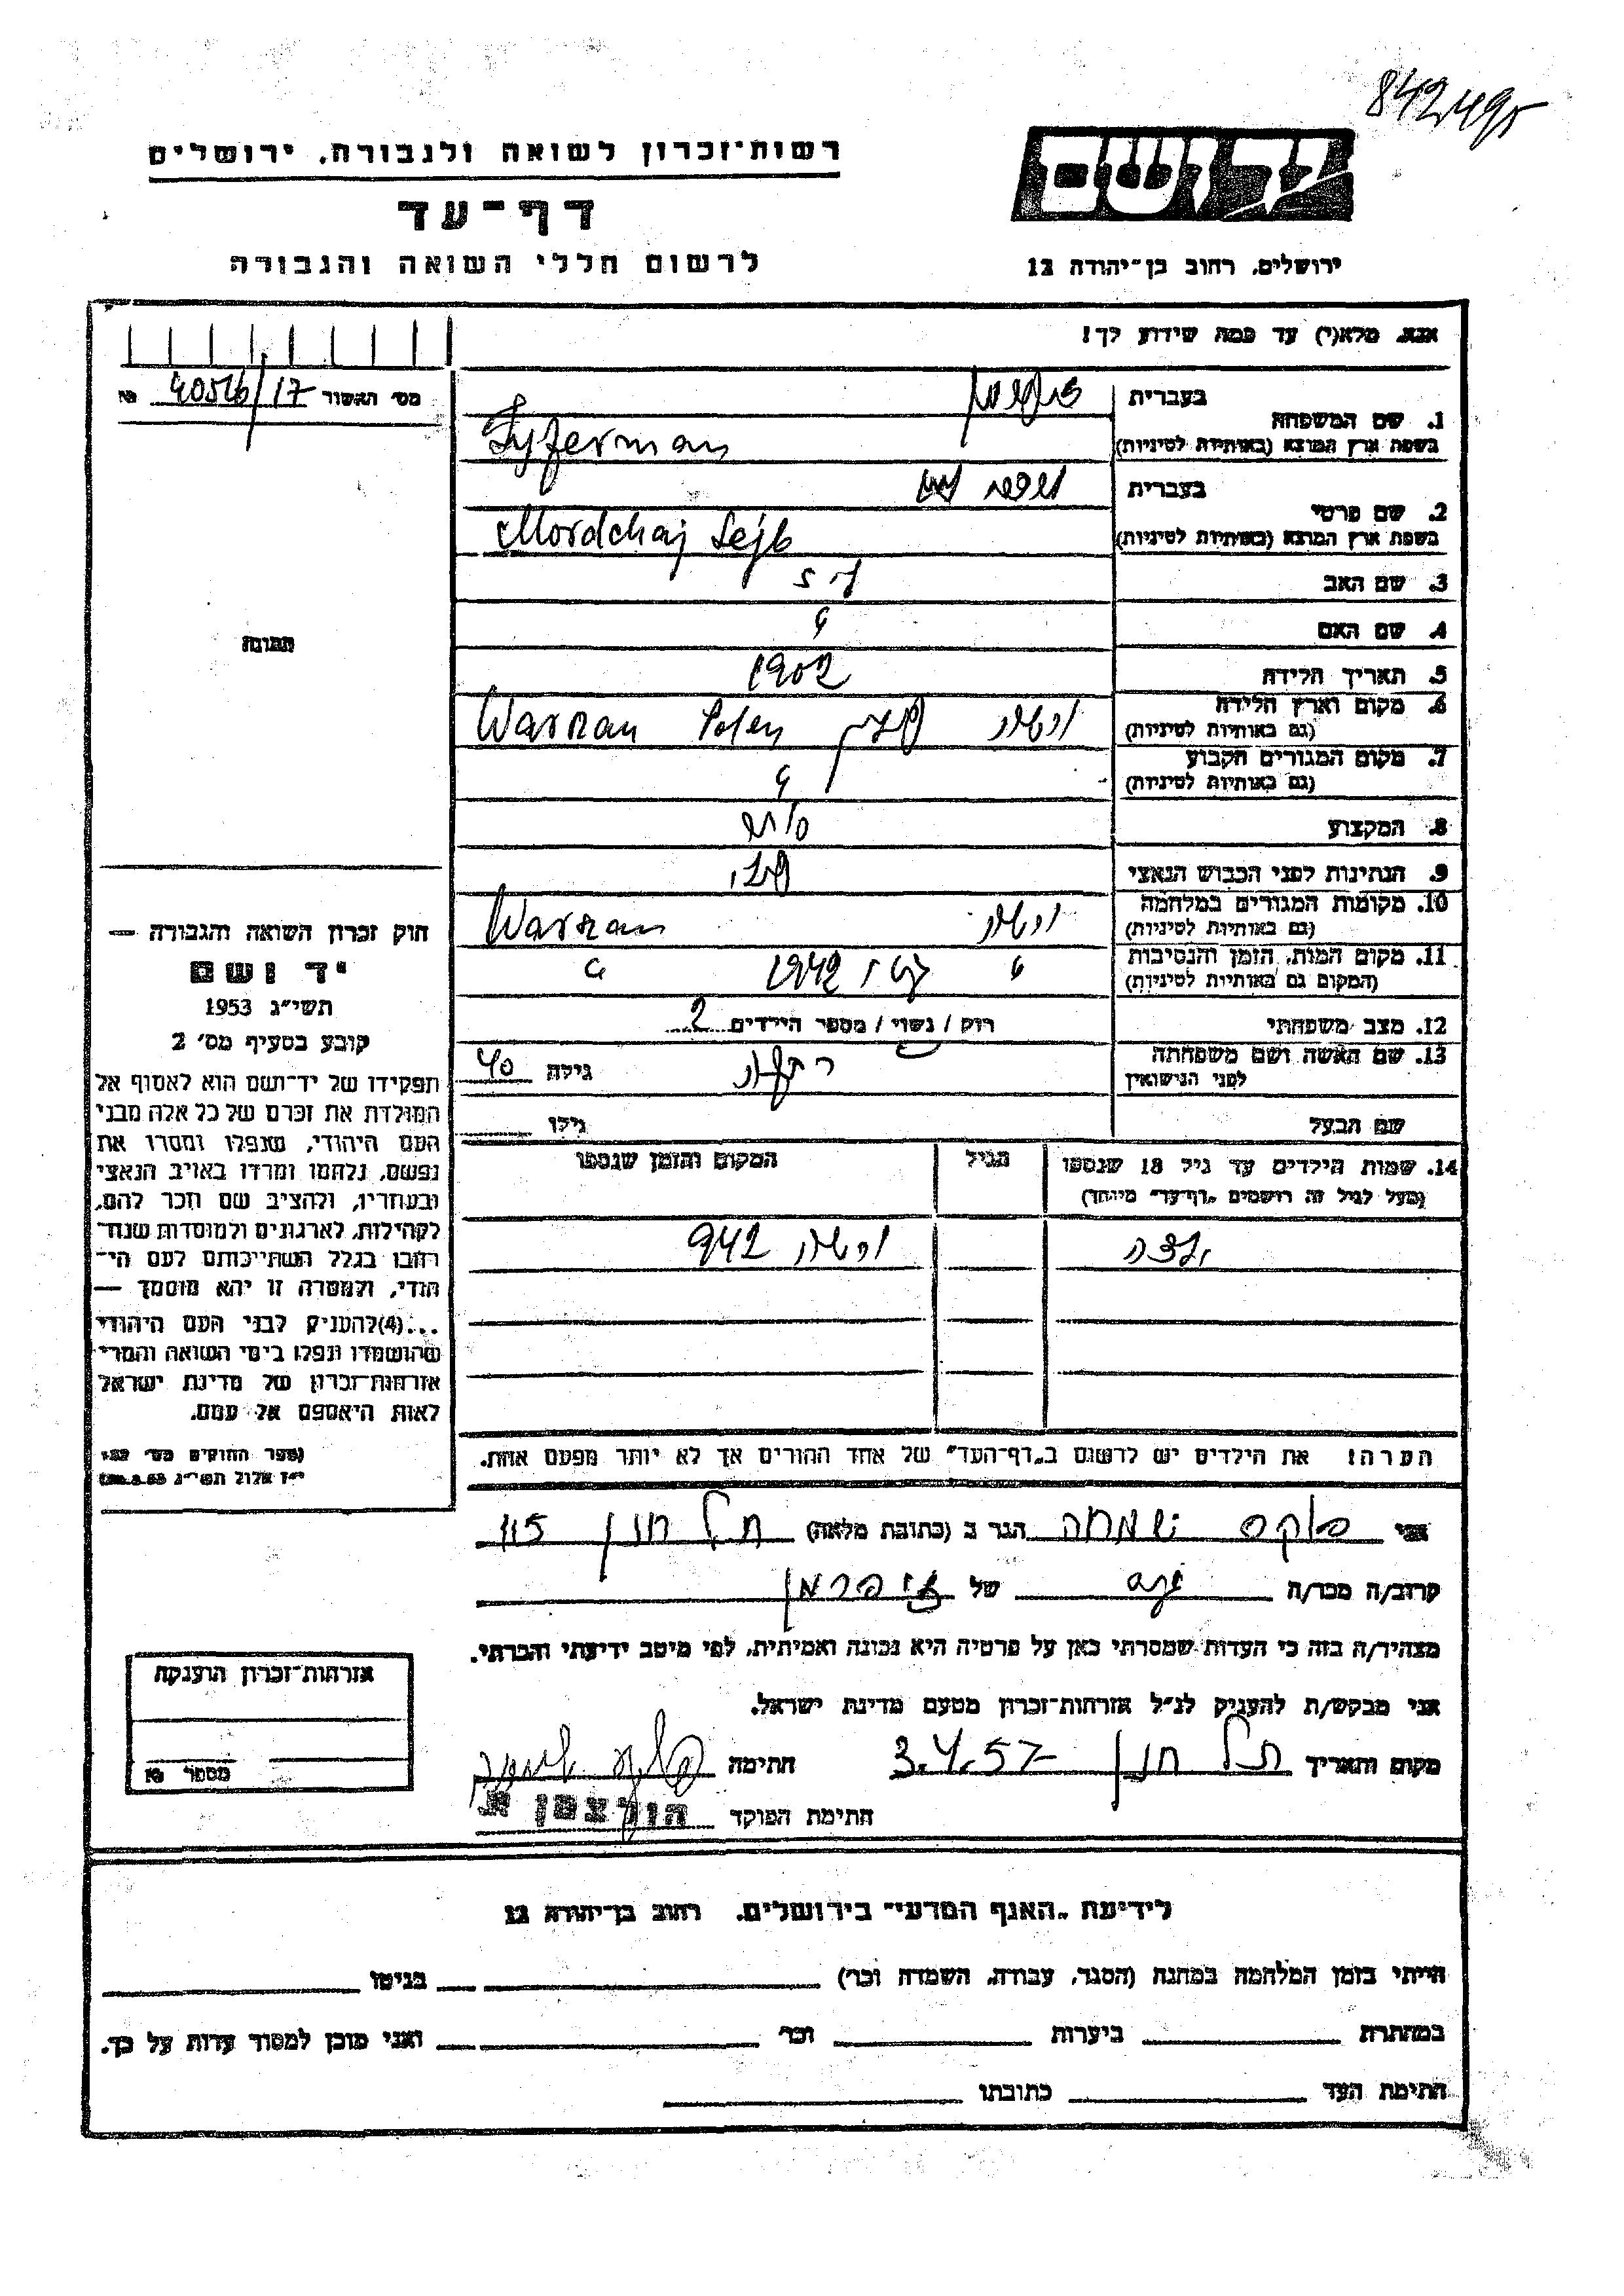 842495
רשות־זכרון לשואה ולגבורה, ירושלים
דף־עד
לרשום חללי השואה והגבורה
יד ושם
ירושלים, רחוב בן־יהודה 12
אנא, מלא(י) עד כמה שידוע לך!
מס' האשור 40526/17 №
1. שם המשפחה
בעברית
בשפת ארץ המוצא (באותיות לטיניות) Zyferman
2. שם פרטי
בעברית
בשפת ארץ המוצא (באותיות לטיניות) Mordchaj Lejb
3. שם האב
4. שם האם
5. תאריך הלידה 1902
6. מקום וארץ הלידה
(גם באותיות לטיניות) ורשה פולין Warszau Polen
7. מקום המגורים הקבוע
(גם באותיות לטיניות)
8. המקצוע סוחר
9. הנתינות לפני הכבוש הנאצי פולני
10. מקומות המגורים במלחמה
(גם באותיות לטיניות) ורשה Warszau
11. מקום המות, הזמן והנסיבות
(המקום גם באותיות לטיניות) 1942
12. מצב משפחתי רווק / נשוי / מספר הילדים 2
13. שם האשה ושם משפחתה
לפני הנישואין גילה 40
שם הבעל גילו
14. שמות הילדים עד גיל 18 שנספו
(מעל לגיל זה רושמים „דף־עד" מיוחד)
הגיל
המקום והזמן שנספו
ורשה 942
הערה: את הילדים יש לרשום ב„דף־העד" של אחד ההורים אך לא יותר מפעם אחת.
תמונה
חוק זכרון השואה והגבורה —
יד ושם
תשי"ג 1953
קובע בסעיף מס' 2
תפקידו של יד־ושם הוא לאסוף אל
המולדת את זכרם של כל אלה מבני
העם היהודי, שנפלו ומסרו את
נפשם, נלחמו ומרדו באויב הנאצי
ובעוזריו, ולהציב שם וזכר להם,
לקהילות, לארגונים ולמוסדות שנח־
רבו בגלל השתייכותם לעם הי־
הודי, ולמטרה זו יהא מוסמך —
...(4) להעניק לבני העם היהודי
שהושמדו ונפלו בימי השואה והמרי
אזרחות־זכרון של מדינת ישראל
לאות היאספם אל עמם.
(ספר החוקים מס' 132
י"ז אלול תשי"ג 28.8.53)
אני פוקס שמחה הגר ב (כתובת מלאה) תל חנן 115
קרוב/ה מכר/ה של ציפרמן
מצהיר/ה בזה כי העדות שמסרתי כאן על פרטיה היא נכונה ואמיתית, לפי מיטב ידיעתי והכרתי.
אני מבקש/ת להעניק לנ"ל אזרחות־זכרון מטעם מדינת ישראל.
מקום ותאריך תל חנן 3.4.57 חתימה
חתימת הפוקד
אזרחות־זכרון הוענקה
מספר №
לידיעת „האגף המדעי" בירושלים, רחוב בן־יהודה 12
הייתי בזמן המלחמה במחנה (הסגר, עבודה, השמדה וכו') בגיטו
במחתרת ביערות וכו' ואני מוכן למסור עדות על כך.
חתימת העד כתובתו